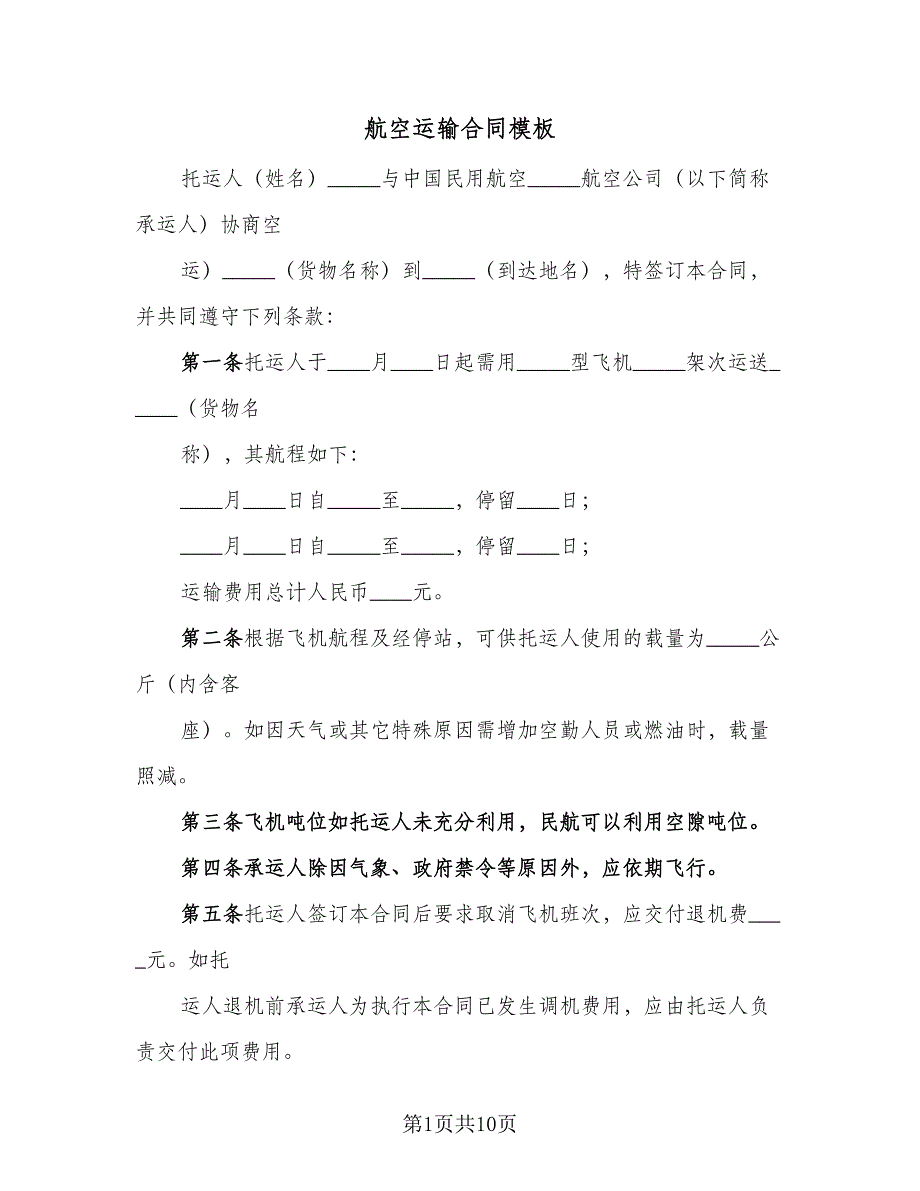 航空运输合同模板
托运人（姓名）_____与中国民用航空_____航空公司（以下简称
承运人）协商空
运）_____（货物名称）到_____（到达地名），特签订本合同，
并共同遵守下列条款：
第一条托运人于____月____日起需用_____型飞机_____架次运送_
____（货物名
称），其航程如下：
____月____日自_____至_____，停留____日；
____月____日自_____至_____，停留____日；
运输费用总计人民币____元。
第二条根据飞机航程及经停站，可供托运人使用的载量为_____公
斤（内含客
座）。如因天气或其它特殊原因需增加空勤人员或燃油时，载量
照减。
第三条飞机吨位如托运人未充分利用，民航可以利用空隙吨位。
第四条承运人除因气象、政府禁令等原因外，应依期飞行。
第五条托运人签订本合同后要求取消飞机班次，应交付退机费___
_元。如托
运人退机前承运人为执行本合同已发生调机费用，应由托运人负
责交付此项费用。
第1页共10页